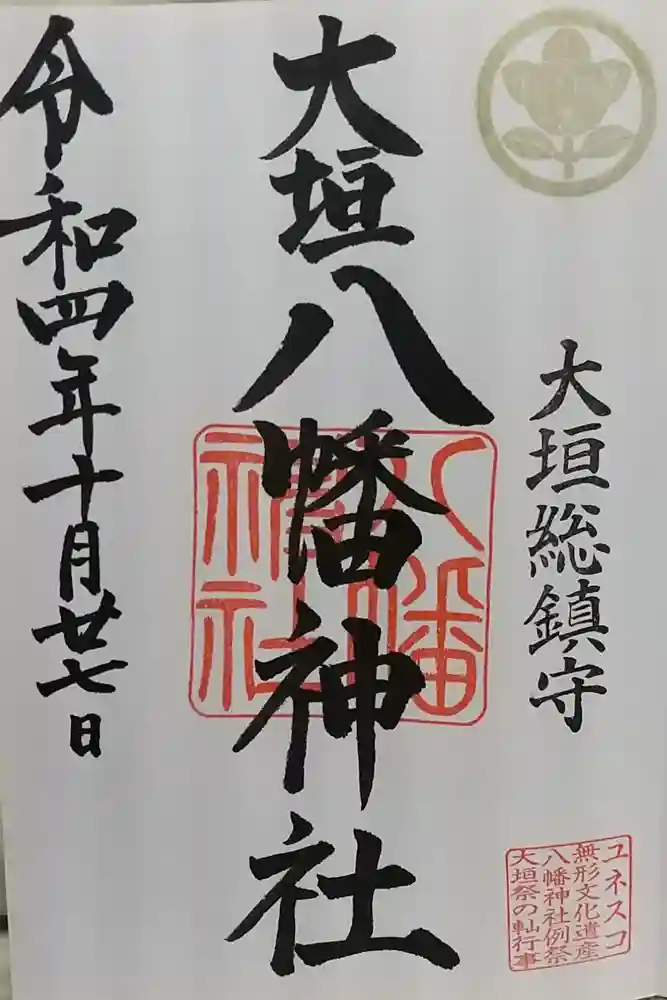 大垣総鎮守
ユネスコ
無形文化遺産
八幡神社例祭
大垣祭の軕行事
大垣八幡神社
八幡
神社
令和四年十月廿七日